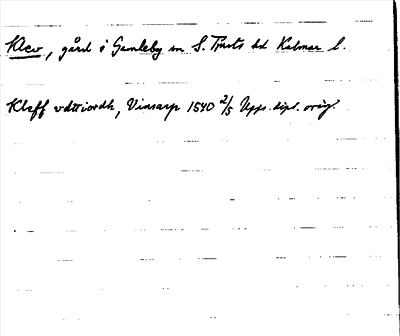 Klev, gård i Gamleby sn S. Tjusts hd Kalmar l.
Kleff vdttiordh, Vinsarp 1540 2/5 Upps. dipl. orig.